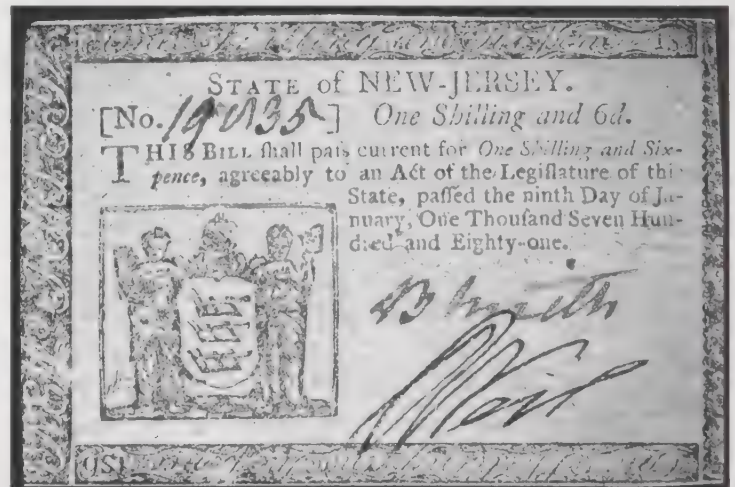 STATE of NEW-JERSEY.
[No. 19835] One Shilling and 6d.
THIS BILL ſhall paſs current for One Shilling and Six-
pence, agreeably to an Act of the Legiſlature of this
State, paſſed the ninth Day of Ja-
nuary, One Thouſand Seven Hun-
dred and Eighty-one.
B Smith